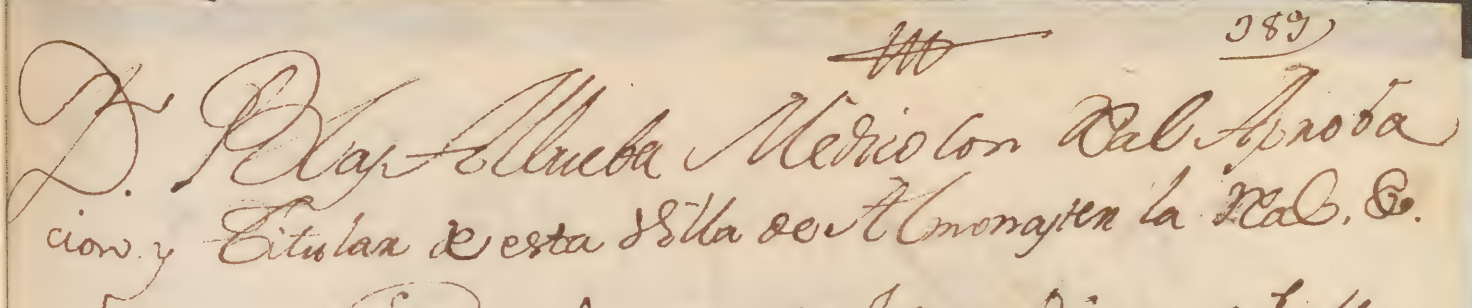 389
D. Blas Allrueba Medico con Real Aproba
cion y Titular de esta Villa de Almonaster la Real. &.